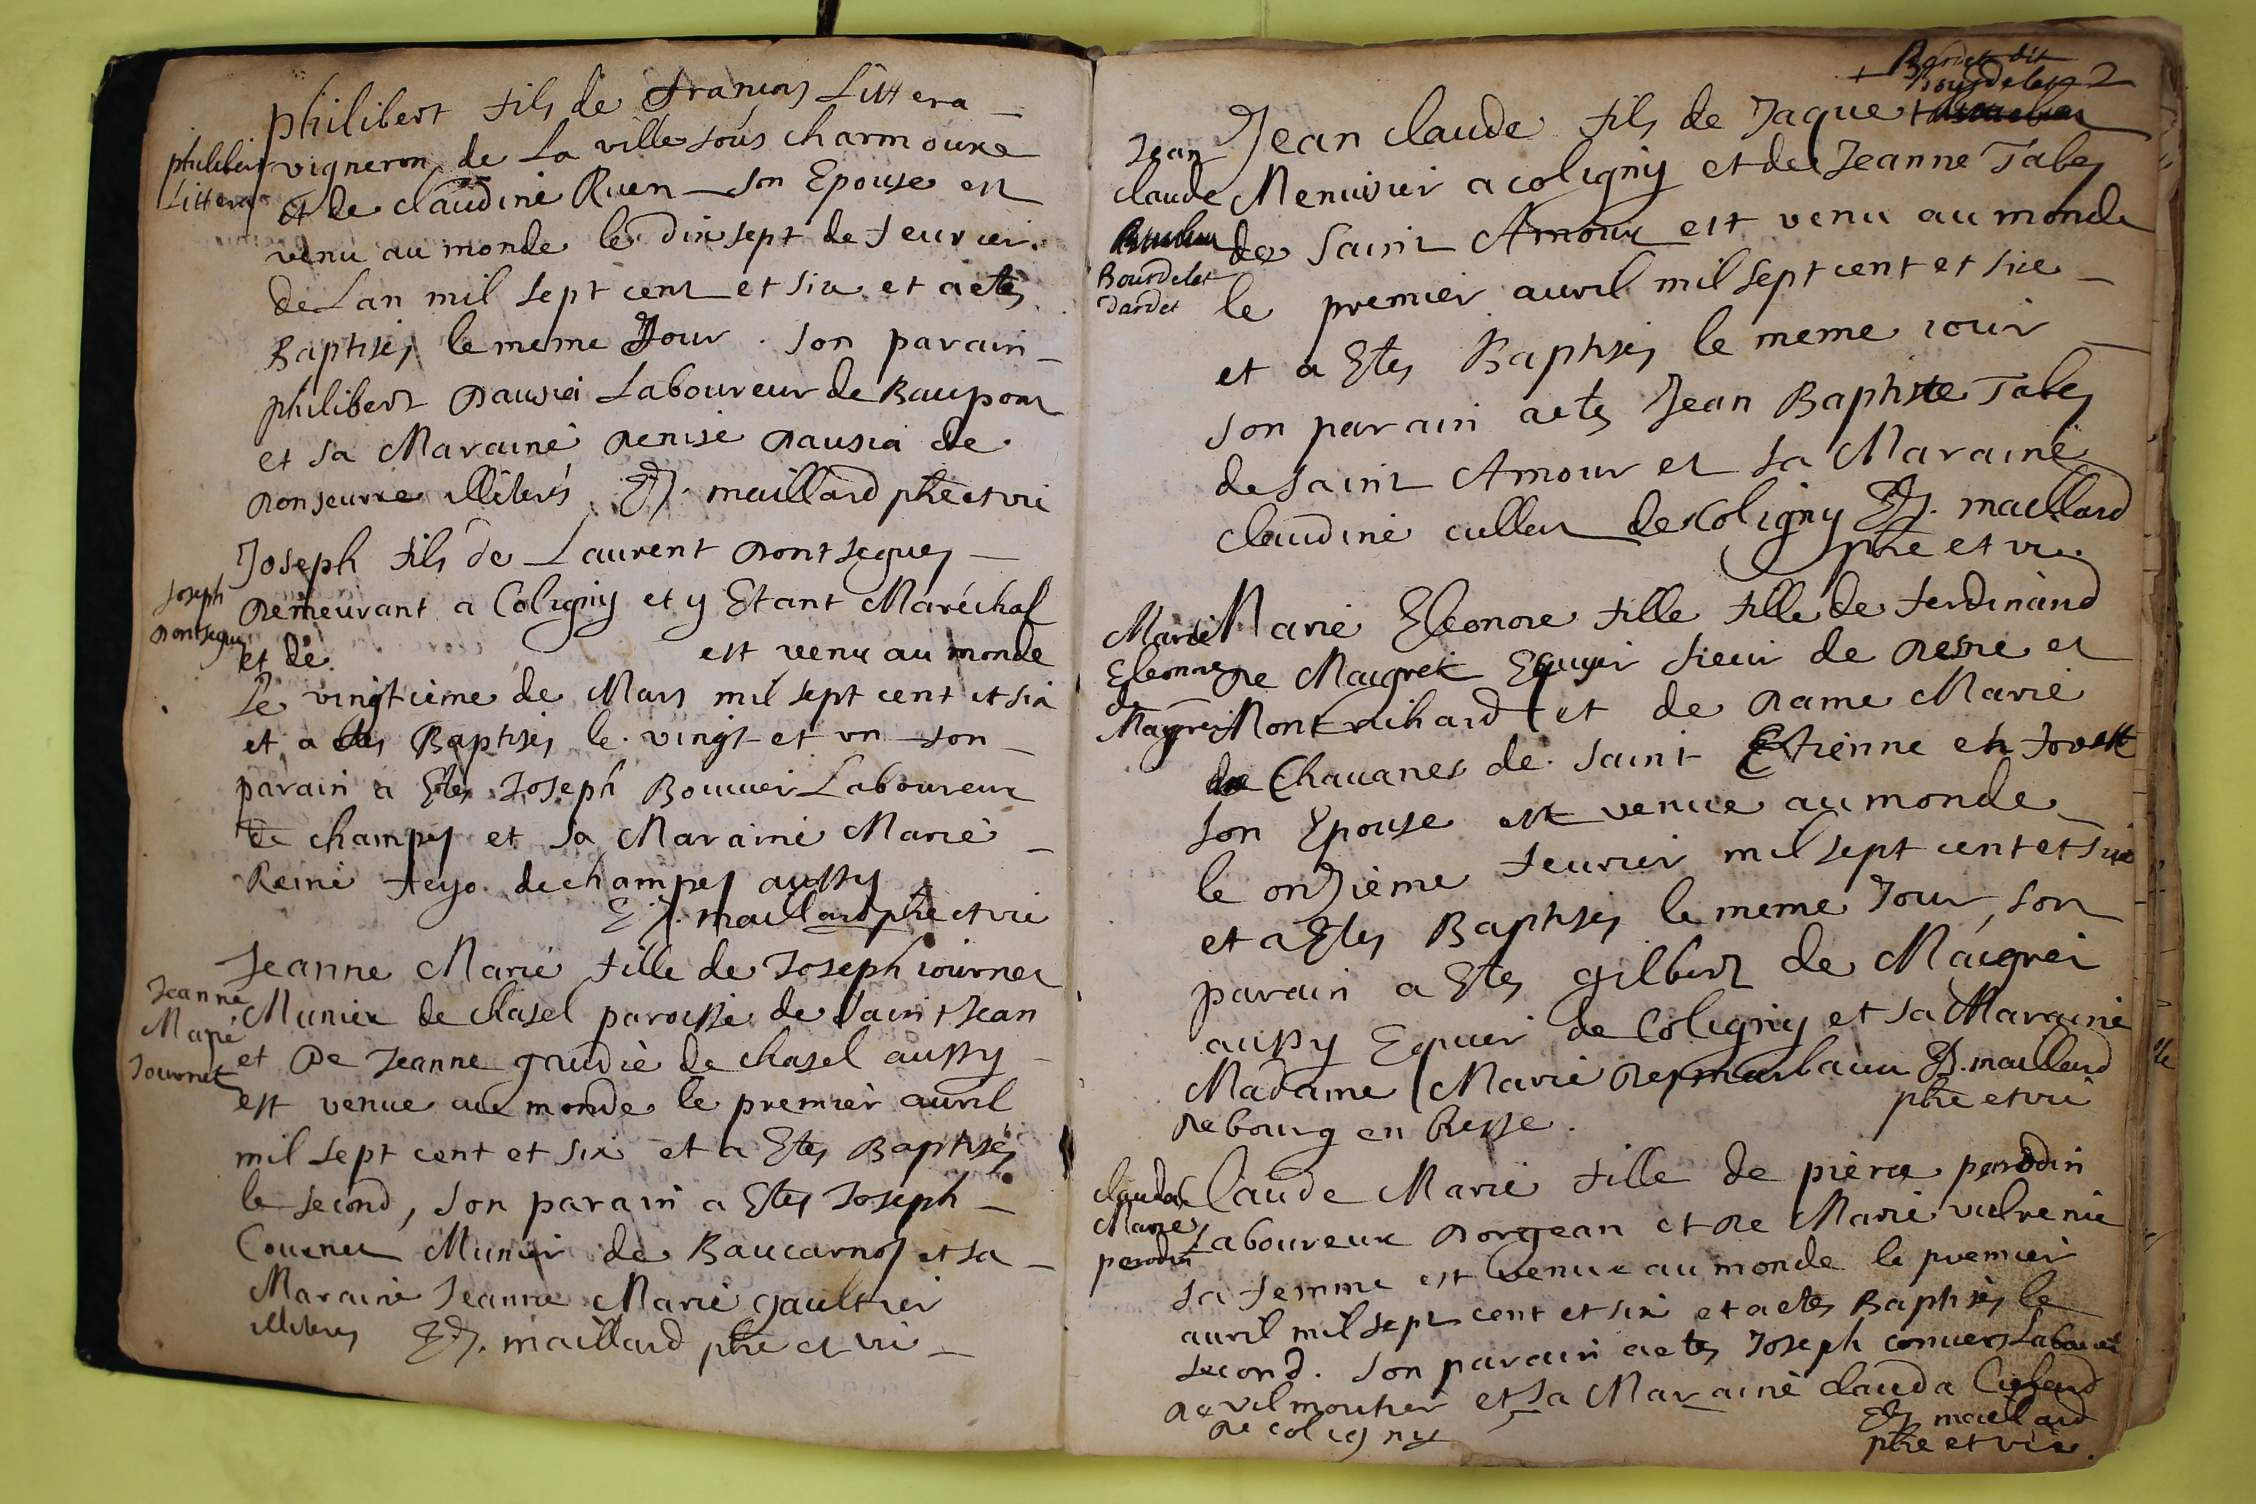 philibert fils de francois Littera
vigneron de La ville sous charmoune
philibert
Littera
et de claudine Ruen son Epouse est
venu au monde le dix sept de feurier
de Lan mil sept cent et six et a etes
Baptises le meme Jour. son parain
philibert Dausia Laboureur de Baupont
et sa Maraine Denise Dausia de
Donseurre illiterés EJ. maillard phre et vi
Joseph fils de Laurent Dontsegues
Joseph
Dontsegue
Demeurant a Coligny et y Etant Maréchal
et de est venu au monde
Le vingtieme de Mars mil sept cent et six
et a etes Baptises le vingt et un son
parain a Etes Joseph Bouuier Laboureur
de champes et sa Maraine Marie
Reine feyo de champes aussy
EJ. maillard phre et vi
Jeanne Marie fille de Joseph iournet
Jeanne
Marie
Journet
Munier de chasel paroisse de Saint Jean
et De Jeanne gaudie de chasel aussy
est venue au monde le premier auril
mil sept cent et six et a Etes Baptisés
le second, son parain a Etes Joseph
Couenet Munier de Baucarnos et sa
Maraine Jeanne Marie gaultier
illiteres EJ. maillard phre et vi
2
dit
Bourdelet
Jean claude fils de Jaque
Jean
claude
Bourdelet
dardet
Menuisier a coligny et de Jeanne Tabes
de Saint Amour est venu au monde
le premier auril mil sept cent et six
et a Etes Baptises le meme iour
son parain a etes Jean Baptiste Tabes
de saint Amour et sa Maraine
claudine cullet de Coligny EJ. maillard
phre et vi.
Marie
Eleonore
de
Maigret
Marie Eleonore fille fille de ferdinand
De Maigret Equyer sieur de Desne et
Montrichard et de Dame Marie
de Chauanes de saint Etienne en forest
son Epouse est venue au monde
le onzieme feurier mil sept cent et six
et a Etes Baptises le meme Jour, son
parain a Etes gilbert de Maigrei
aussy Equier de Coligny et sa Maraine
Madame Marie EJ. maillard
phre et vi
De bourg en bresse.
Claude Marie fille de pierre perodin
clauda
Marie
perodin
Laboureur Dorgean et De Marie vulrenie
sa femme est venue au monde le premier
auril mil sept cent et six et a etes Baptisés le
second. son parain a etes Joseph conuers Labouret
De vilmoutier et sa Maraine clauda
De coligny
EJ. maillard
phre et vi.